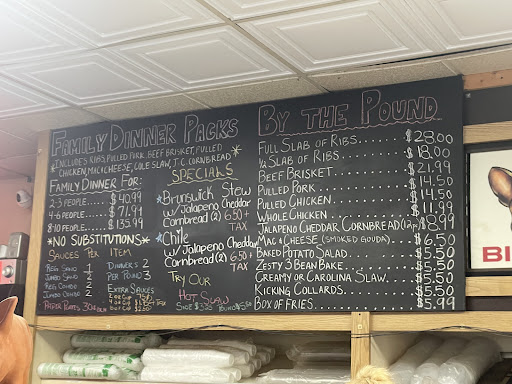 FAMILY DINNER PACKS
*INCLUDES RIBS, PULLED PORK, BEEF BRISKET, PULLED
CHICKEN, MAC & CHEESE, COLE SLAW, J.C. CORNBREAD*
FAMILY DINNER FOR:
2-3 PEOPLE..... $40.99
4-6 PEOPLE..... $71.94
8-10 PEOPLE.... $135.99
*NO SUBSTITUTIONS*
SAUCES PER ITEM
REG SAND 1
JUMBO SAND 2
REG COMBO 2
JUMBO COMBO 2
DINNERS 2
PER POUND 3
EXTRA SAUCES
PAPER PLATES
SPECIALS
*BRUNSWICK STEW
W/ JALAPENO CHEDDAR
CORNBREAD (2) 6.50 +
TAX
*CHILE
W/ JALAPENO CHEDDAR
CORNBREAD (2) 6.50 +
TAX
TRY OUR
HOT SLAW
SIDE
BY THE POUND
FULL SLAB OF RIBS..... $28.00
½ SLAB OF RIBS..... $18.00
BEEF BRISKET..... $21.99
PULLED PORK..... $14.50
PULLED CHICKEN..... $14.50
WHOLE CHICKEN..... $14.99
JALAPENO CHEDDAR CORNBREAD $8.99
MAC & CHEESE (SMOKED GOUDA)..... $6.50
BAKED POTATO SALAD..... $5.50
ZESTY 3 BEAN BAKE..... $5.50
CREAMY OR CAROLINA SLAW..... $5.50
KICKING COLLARDS..... $5.50
BOX OF FRIES..... $5.99
BI